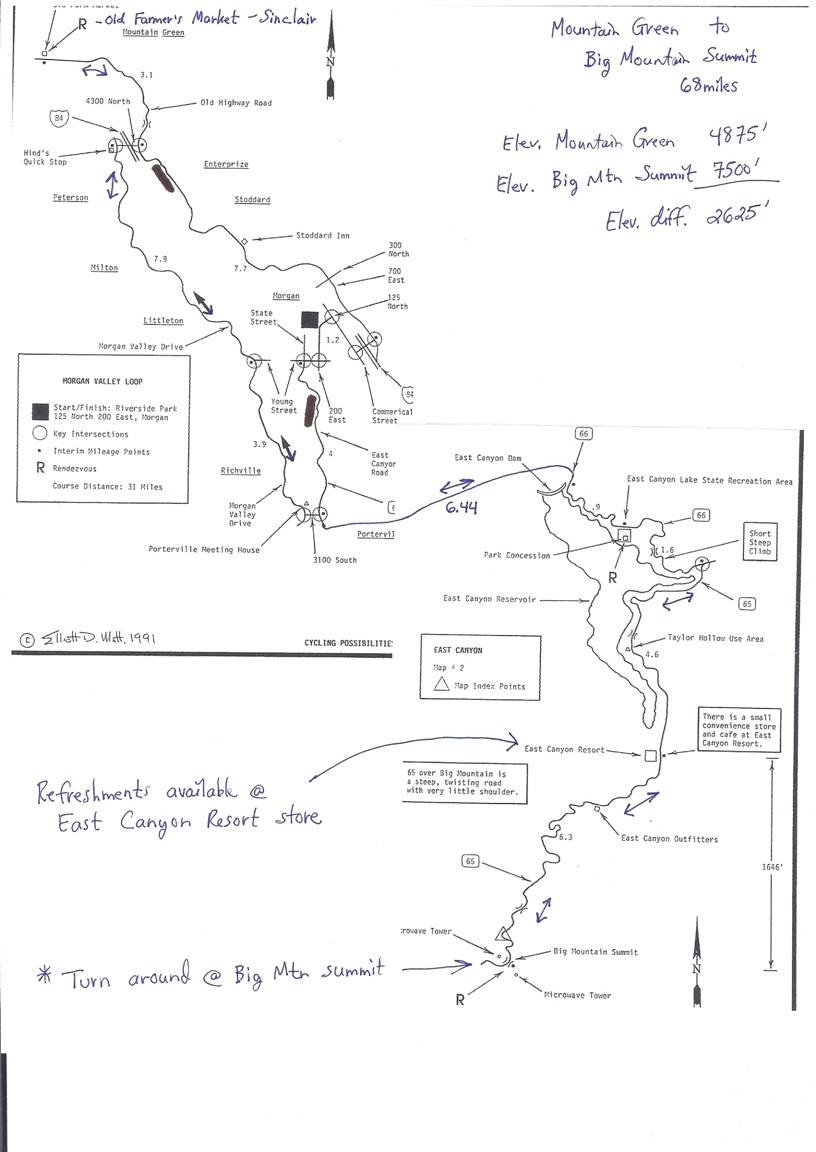 R - Old Farmer's Market - Sinclair
Mountain Green
Mountain Green to
Big Mountain Summit
68 miles
Elev. Mountain Green 4875'
Elev. Big Mtn Summit 7500'
Elev. diff. 2625'
N
3.1
4300 North
Old Highway Road
84
Hind's
Quick Stop
Enterprize
Peterson
Stoddard
Stoddard Inn
300
North
7.9
7.7
700
East
Milton
Morgan
125
North
State
Street
Littleton
1.2
Morgan Valley Drive
84
Young
Street
200
East
Commerical
Street
MORGAN VALLEY LOOP
Start/Finish: Riverside Park
125 North 200 East, Morgan
Key Intersections
Interim Mileage Points
R Rendezvous
Course Distance: 31 Miles
3.9
4
East
Canyor
Road
Richville
Morgan
Valley
Drive
Portervil
Porterville Meeting House
3100 South
6.44
© Elliott D. Mott, 1991
CYCLING POSSIBILITIE
66
East Canyon Dam
East Canyon Lake State Recreation Area
.9
66
Short
Steep
Climb
Park Concession
1.6
R
East Canyon Reservoir
65
Taylor Hollow Use Area
4.6
EAST CANYON
Map # 2
Map Index Points
There is a small
convenience store
and cafe at East
Canyon Resort.
East Canyon Resort
65 over Big Mountain is
a steep, twisting road
with very little shoulder.
Refreshments available @
East Canyon Resort store
6.3
East Canyon Outfitters
65
1646'
rowave Tower
Big Mountain Summit
* Turn around @ Big Mtn summit
Microwave Tower
R
N